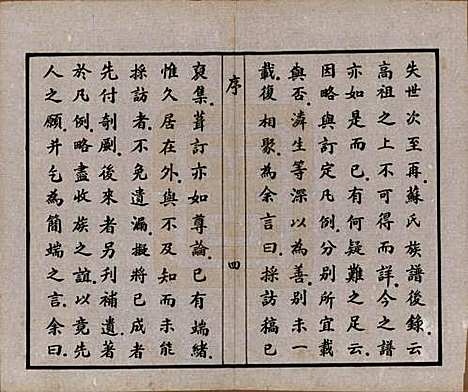 失世次至再蘇氏族譜後錄云
高祖之上不可得而詳今之譜
亦如是而已有何疑難之足云
因略與訂定凡例分別所宜載
與否濟生等深以為善別未一
載復相聚為余言曰採訪稿已
序
四
裒集葺訂亦如尊論已有端緒
惟久居在外與不及知而未能
採訪者不免遺漏擬將已成者
先付剞劂後來者另刊補遺著
於凡例略盡收族之誼以竟先
人之願并乞為簡端之言余曰